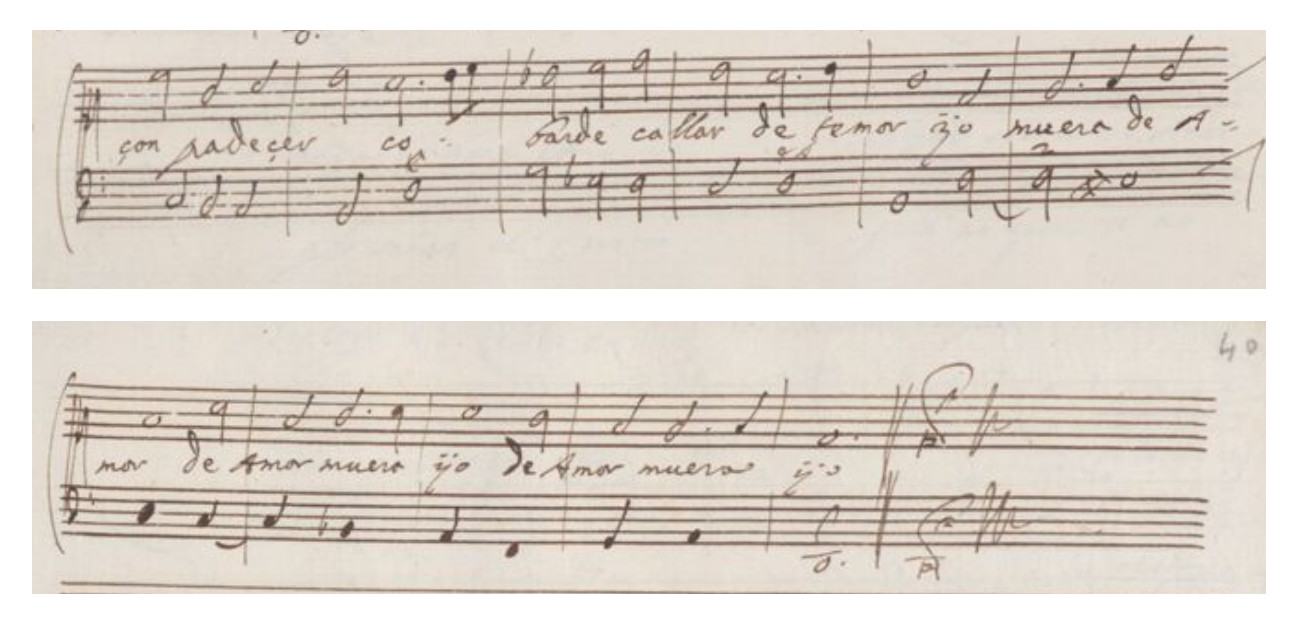 çon padeçer co- barde callar de temor ÿo muera de A-
40
mor de Amor muera ÿo de Amor muera ÿo